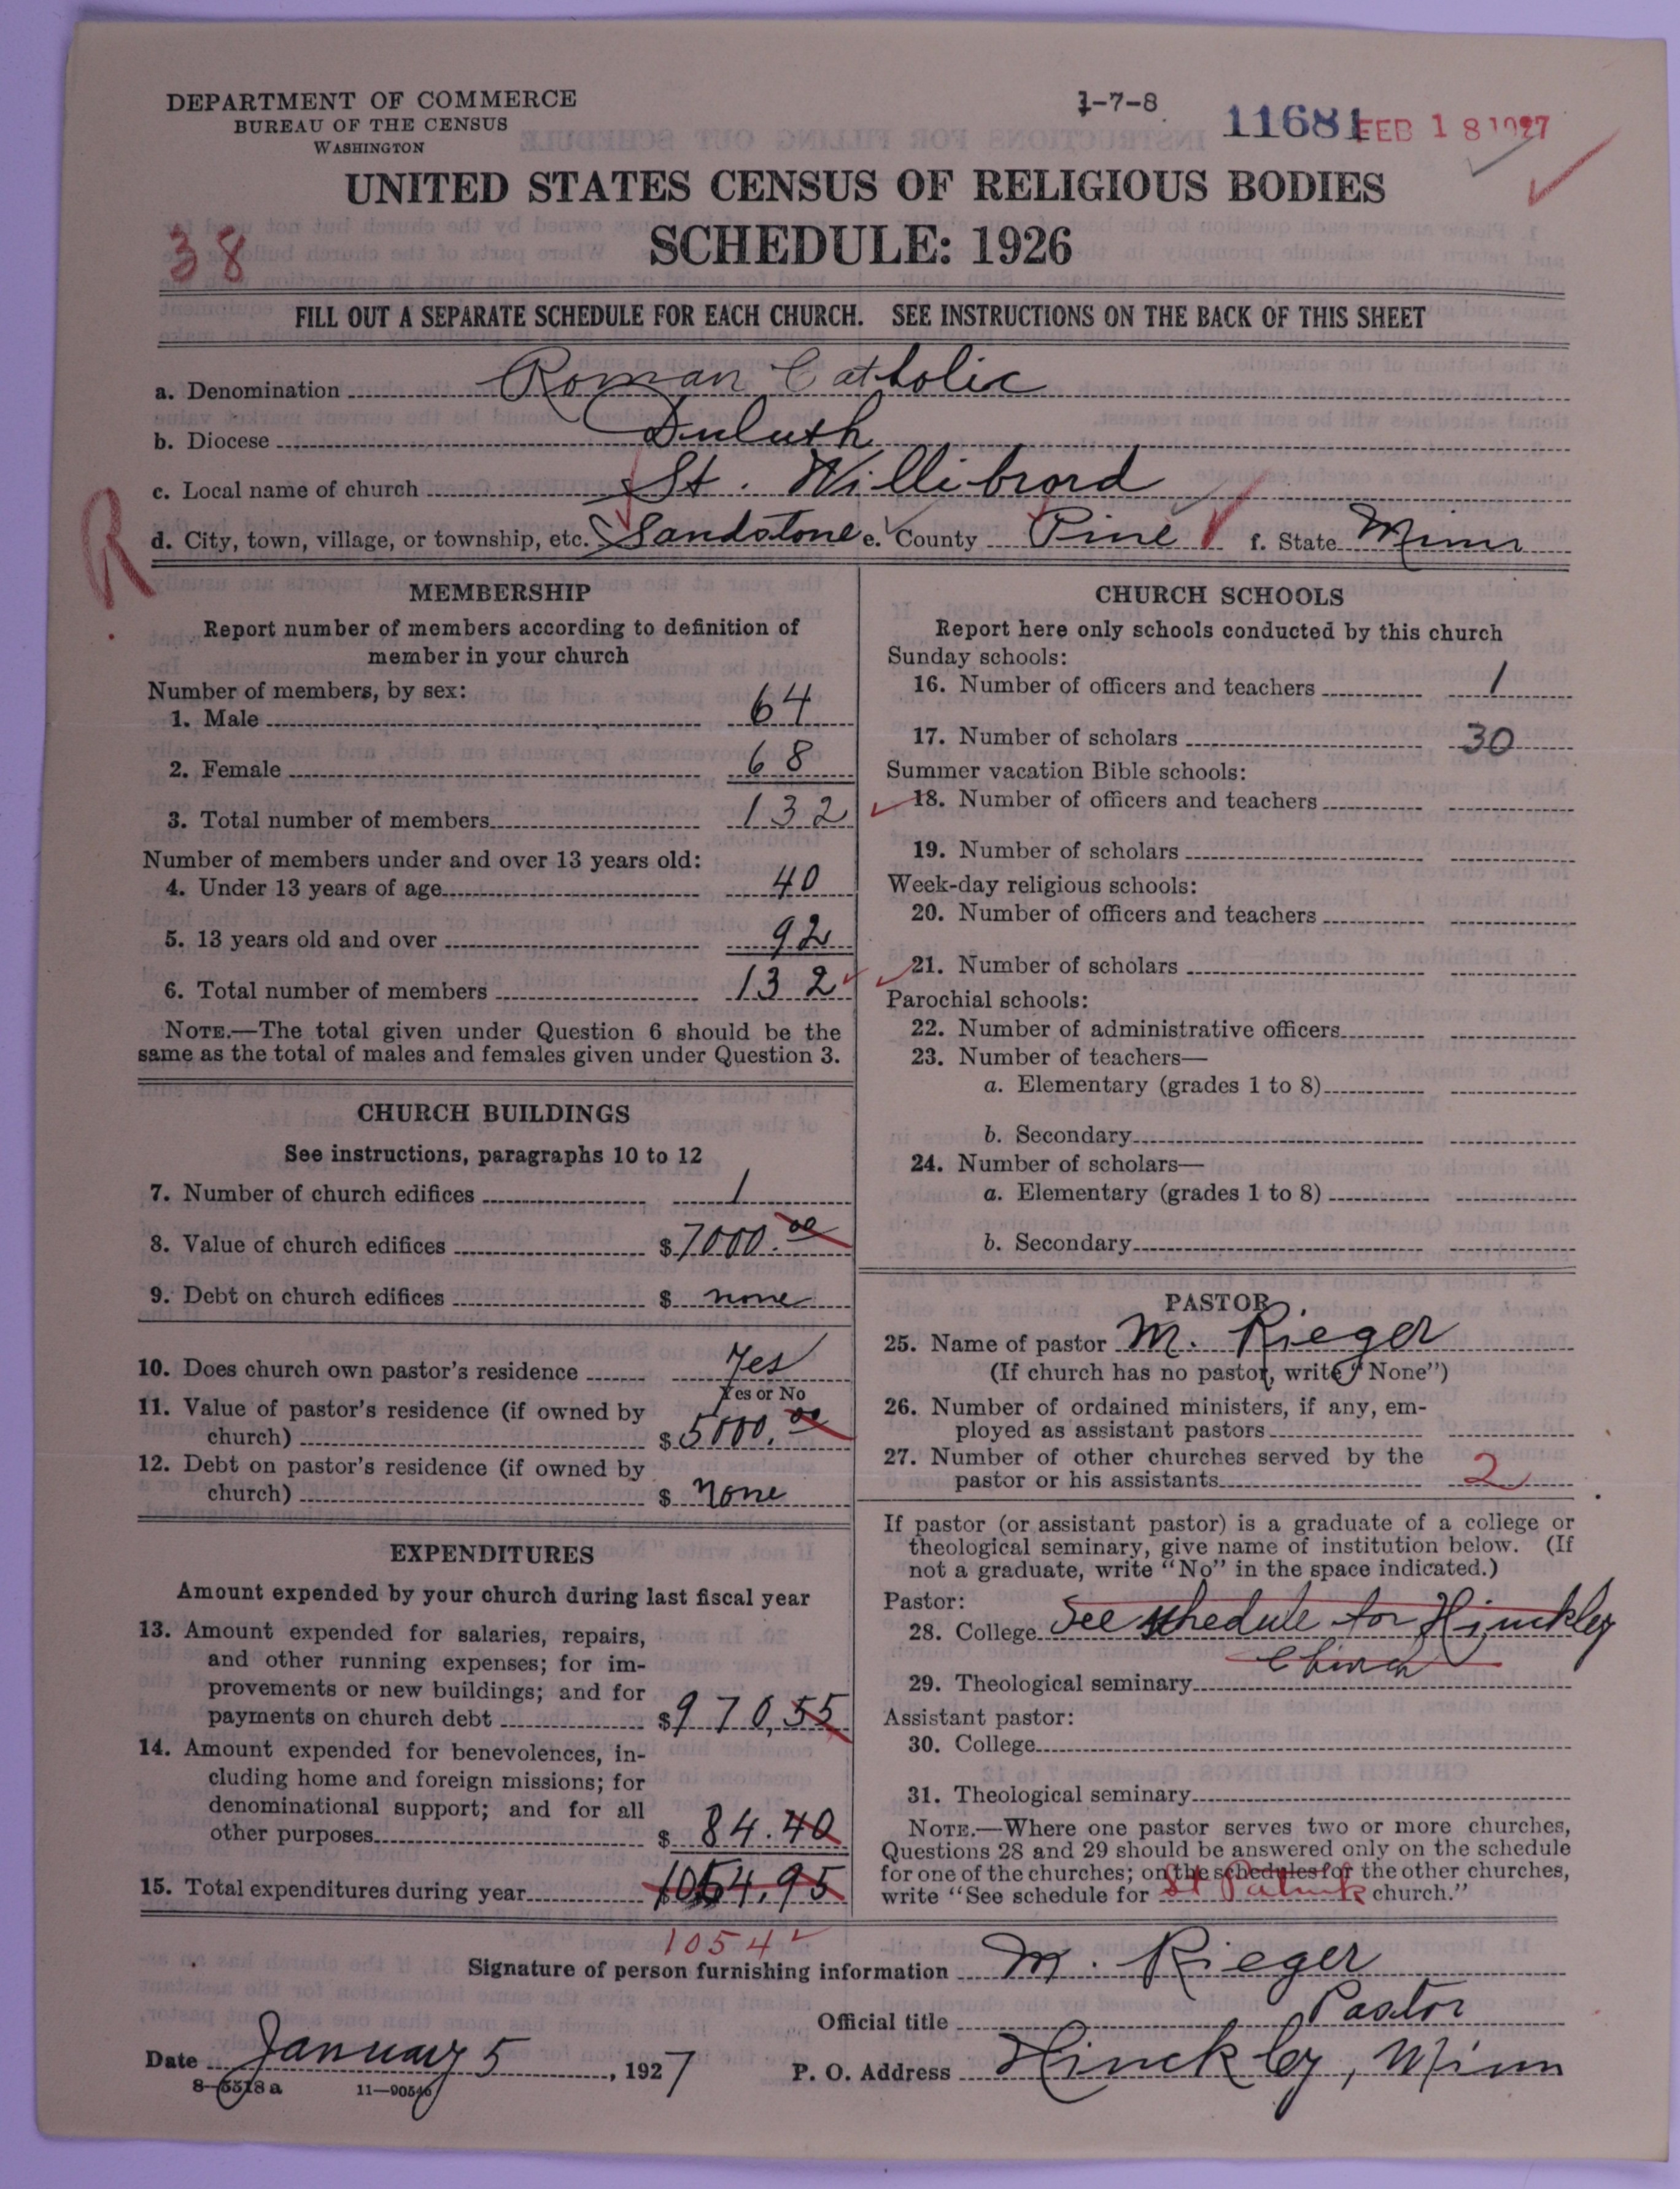 DEPARTMENT OF COMMERCE
BUREAU OF THE CENSUS
WASHINGTON
1-7-8
11681
FEB 18 1927
UNITED STATES CENSUS OF RELIGIOUS BODIES
SCHEDULE: 1926
38
FILL OUT A SEPARATE SCHEDULE FOR EACH CHURCH. SEE INSTRUCTIONS ON THE BACK OF THIS SHEET
a. Denomination Roman Catholic
b. Diocese Duluth
c. Local name of church St. Willibrord
R
d. City, town, village, or township, etc. Sandstone e. County Pine f. State Minn
MEMBERSHIP
Report number of members according to definition of
member in your church
Number of members, by sex:
1. Male 64
2. Female 68
3. Total number of members 132
Number of members under and over 13 years old:
4. Under 13 years of age 40
5. 13 years old and over 92
6. Total number of members 132
NOTE.—The total given under Question 6 should be the
same as the total of males and females given under Question 3.
CHURCH BUILDINGS
See instructions, paragraphs 10 to 12
7. Number of church edifices 1
8. Value of church edifices $7000.00
9. Debt on church edifices $ none
10. Does church own pastor's residence Yes
Yes or No
11. Value of pastor's residence (if owned by
church) $5000.00
12. Debt on pastor's residence (if owned by
church) $ none
EXPENDITURES
Amount expended by your church during last fiscal year
13. Amount expended for salaries, repairs,
and other running expenses; for im-
provements or new buildings; and for
payments on church debt $970,55
14. Amount expended for benevolences, in-
cluding home and foreign missions; for
denominational support; and for all
other purposes $ 84.40
15. Total expenditures during year 1054,95
1054
CHURCH SCHOOLS
Report here only schools conducted by this church
Sunday schools:
16. Number of officers and teachers 1
17. Number of scholars 30
Summer vacation Bible schools:
18. Number of officers and teachers
19. Number of scholars
Week-day religious schools:
20. Number of officers and teachers
21. Number of scholars
Parochial schools:
22. Number of administrative officers
23. Number of teachers—
a. Elementary (grades 1 to 8)
b. Secondary
24. Number of scholars—
a. Elementary (grades 1 to 8)
b. Secondary
PASTOR
25. Name of pastor M. Rieger
(If church has no pastor, write "None")
26. Number of ordained ministers, if any, em-
ployed as assistant pastors
27. Number of other churches served by the
pastor or his assistants 2
If pastor (or assistant pastor) is a graduate of a college or
theological seminary, give name of institution below. (If
not a graduate, write "No" in the space indicated.)
Pastor:
28. College See schedule for Hinckley
29. Theological seminary
Assistant pastor:
30. College
31. Theological seminary
NOTE.—Where one pastor serves two or more churches,
Questions 28 and 29 should be answered only on the schedule
for one of the churches; on the schedules for the other churches,
write "See schedule for St Patrick church."
Signature of person furnishing information M. Rieger
Official title Pastor
Date January 5, 1927 P. O. Address Hinckley, Minn
8—5518 a 11—90546